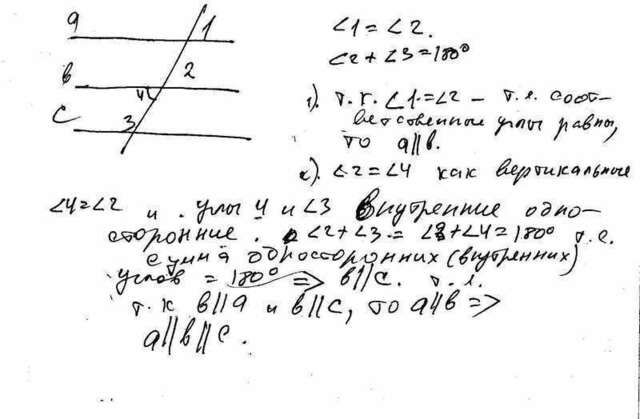 a
1
b
2
4
c
3
∠1=∠2.
∠2+∠3=180°
1). т.к. ∠1=∠2 – т.е. соот-
ветственные углы равны,
то a∥b.
2). ∠2=∠4 как вертикальные
∠4=∠2 и углы 4 и ∠3 внутренние одно-
сторонние. ∠2+∠3=∠3+∠4=180° т.е.
сумма односторонних (внутренних)
углов = 180° => b∥c. т.е.
т.к b∥a и b∥c, то a∥b =>
a∥b∥c.